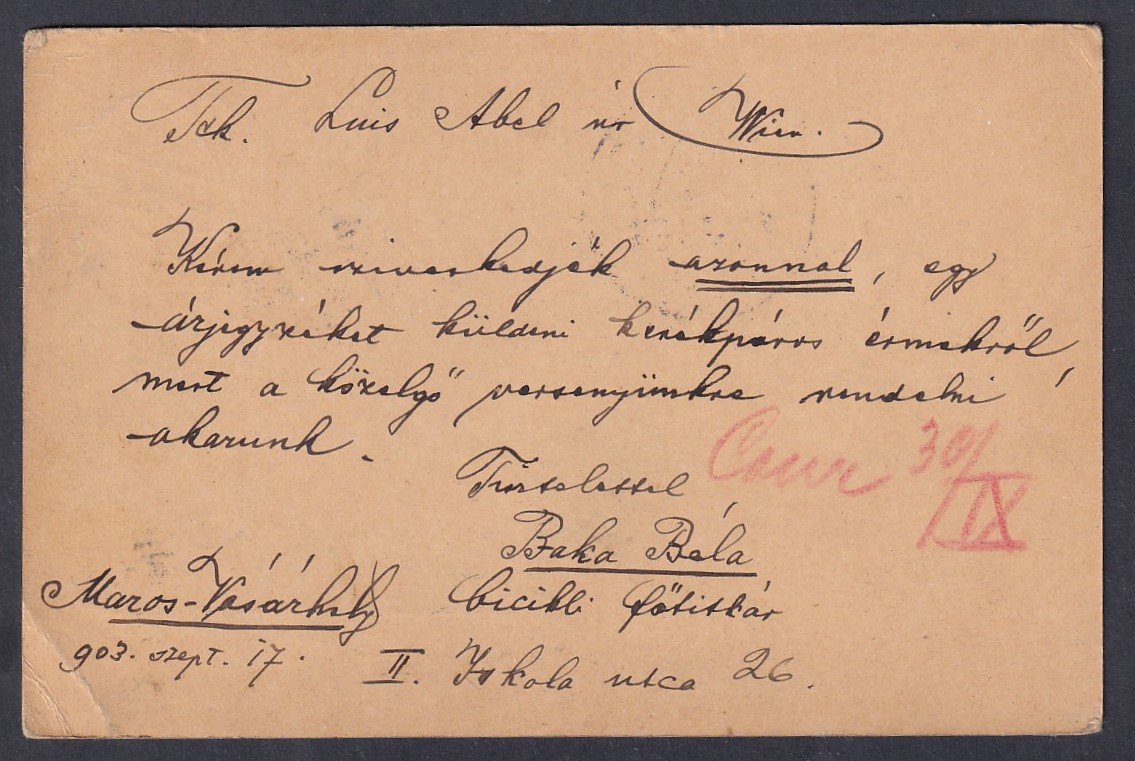 Tek. Luis Abel úr Wien.
Kérem sziveskedjék azonnal, egy
árjegyzéket küldeni kerékpáros érmekről,
mert a közelgő versenyünkre rendelni
akarunk.
Tisztelettel
Baka Béla
bicikli főtitkár
Maros-Vásárhely
903. szept. 17.
II. Iskola utca 26.
30/IX